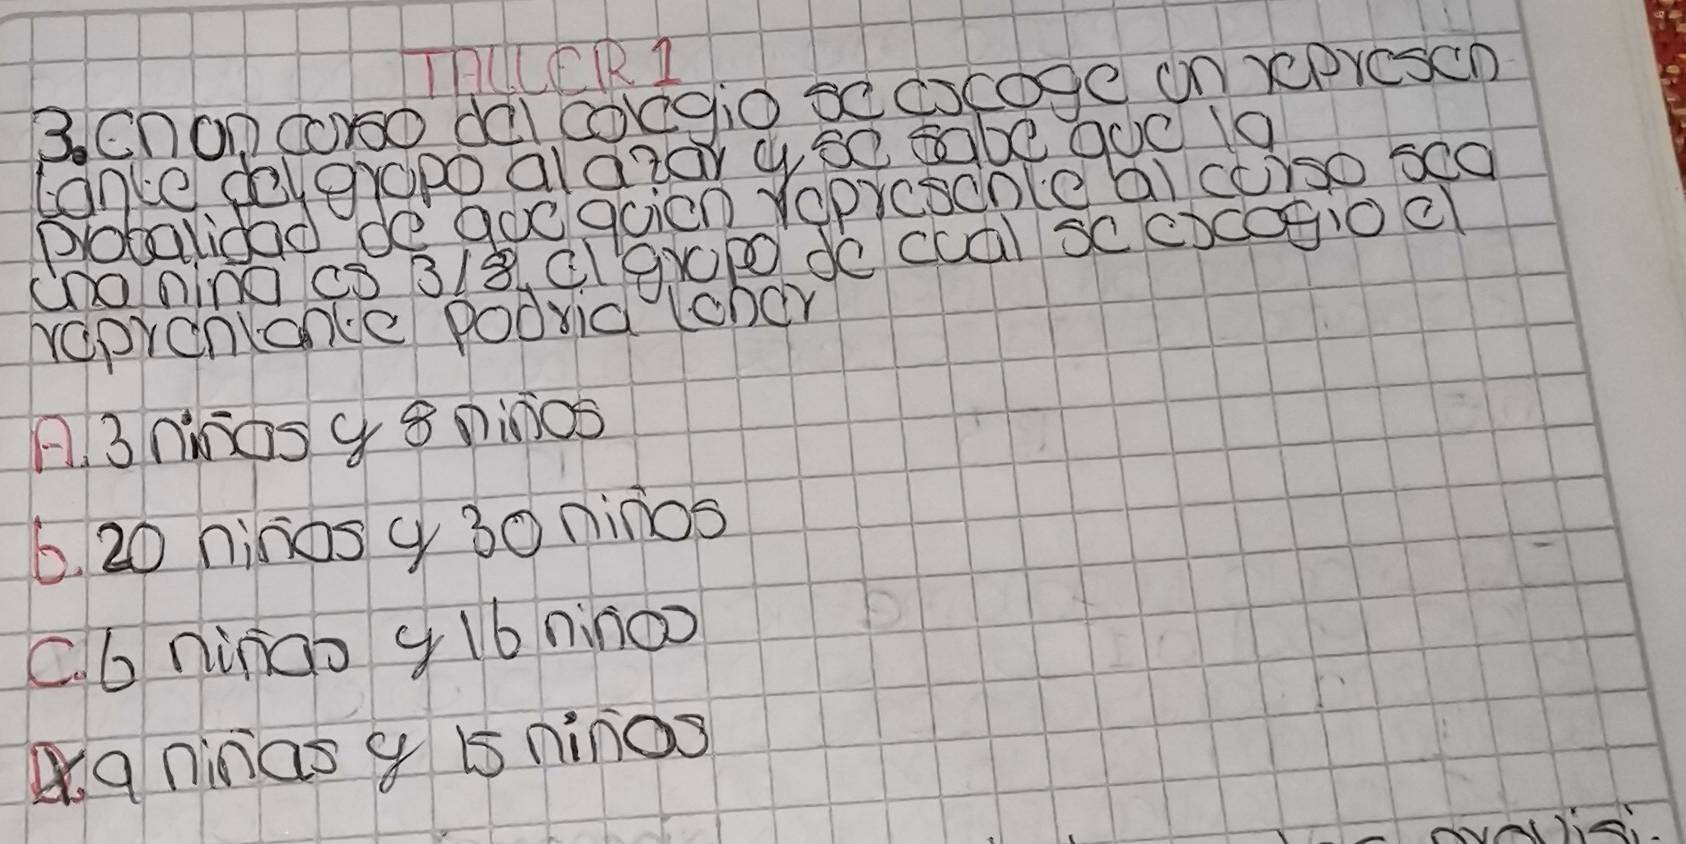 TALLER 1
3. en un curso del colegio se escoge un represen
tante del grupo al azar y se sabe que la
probalidad de que quien represente al curso sea
una niña es 3/8, el grupo de cual se escogio el
reprentante podria tener
A. 3 niñas y 8 niños
b. 20 niñas y 30 niños
C. 6 niñas y 16 niños
9 niñas y 15 niños